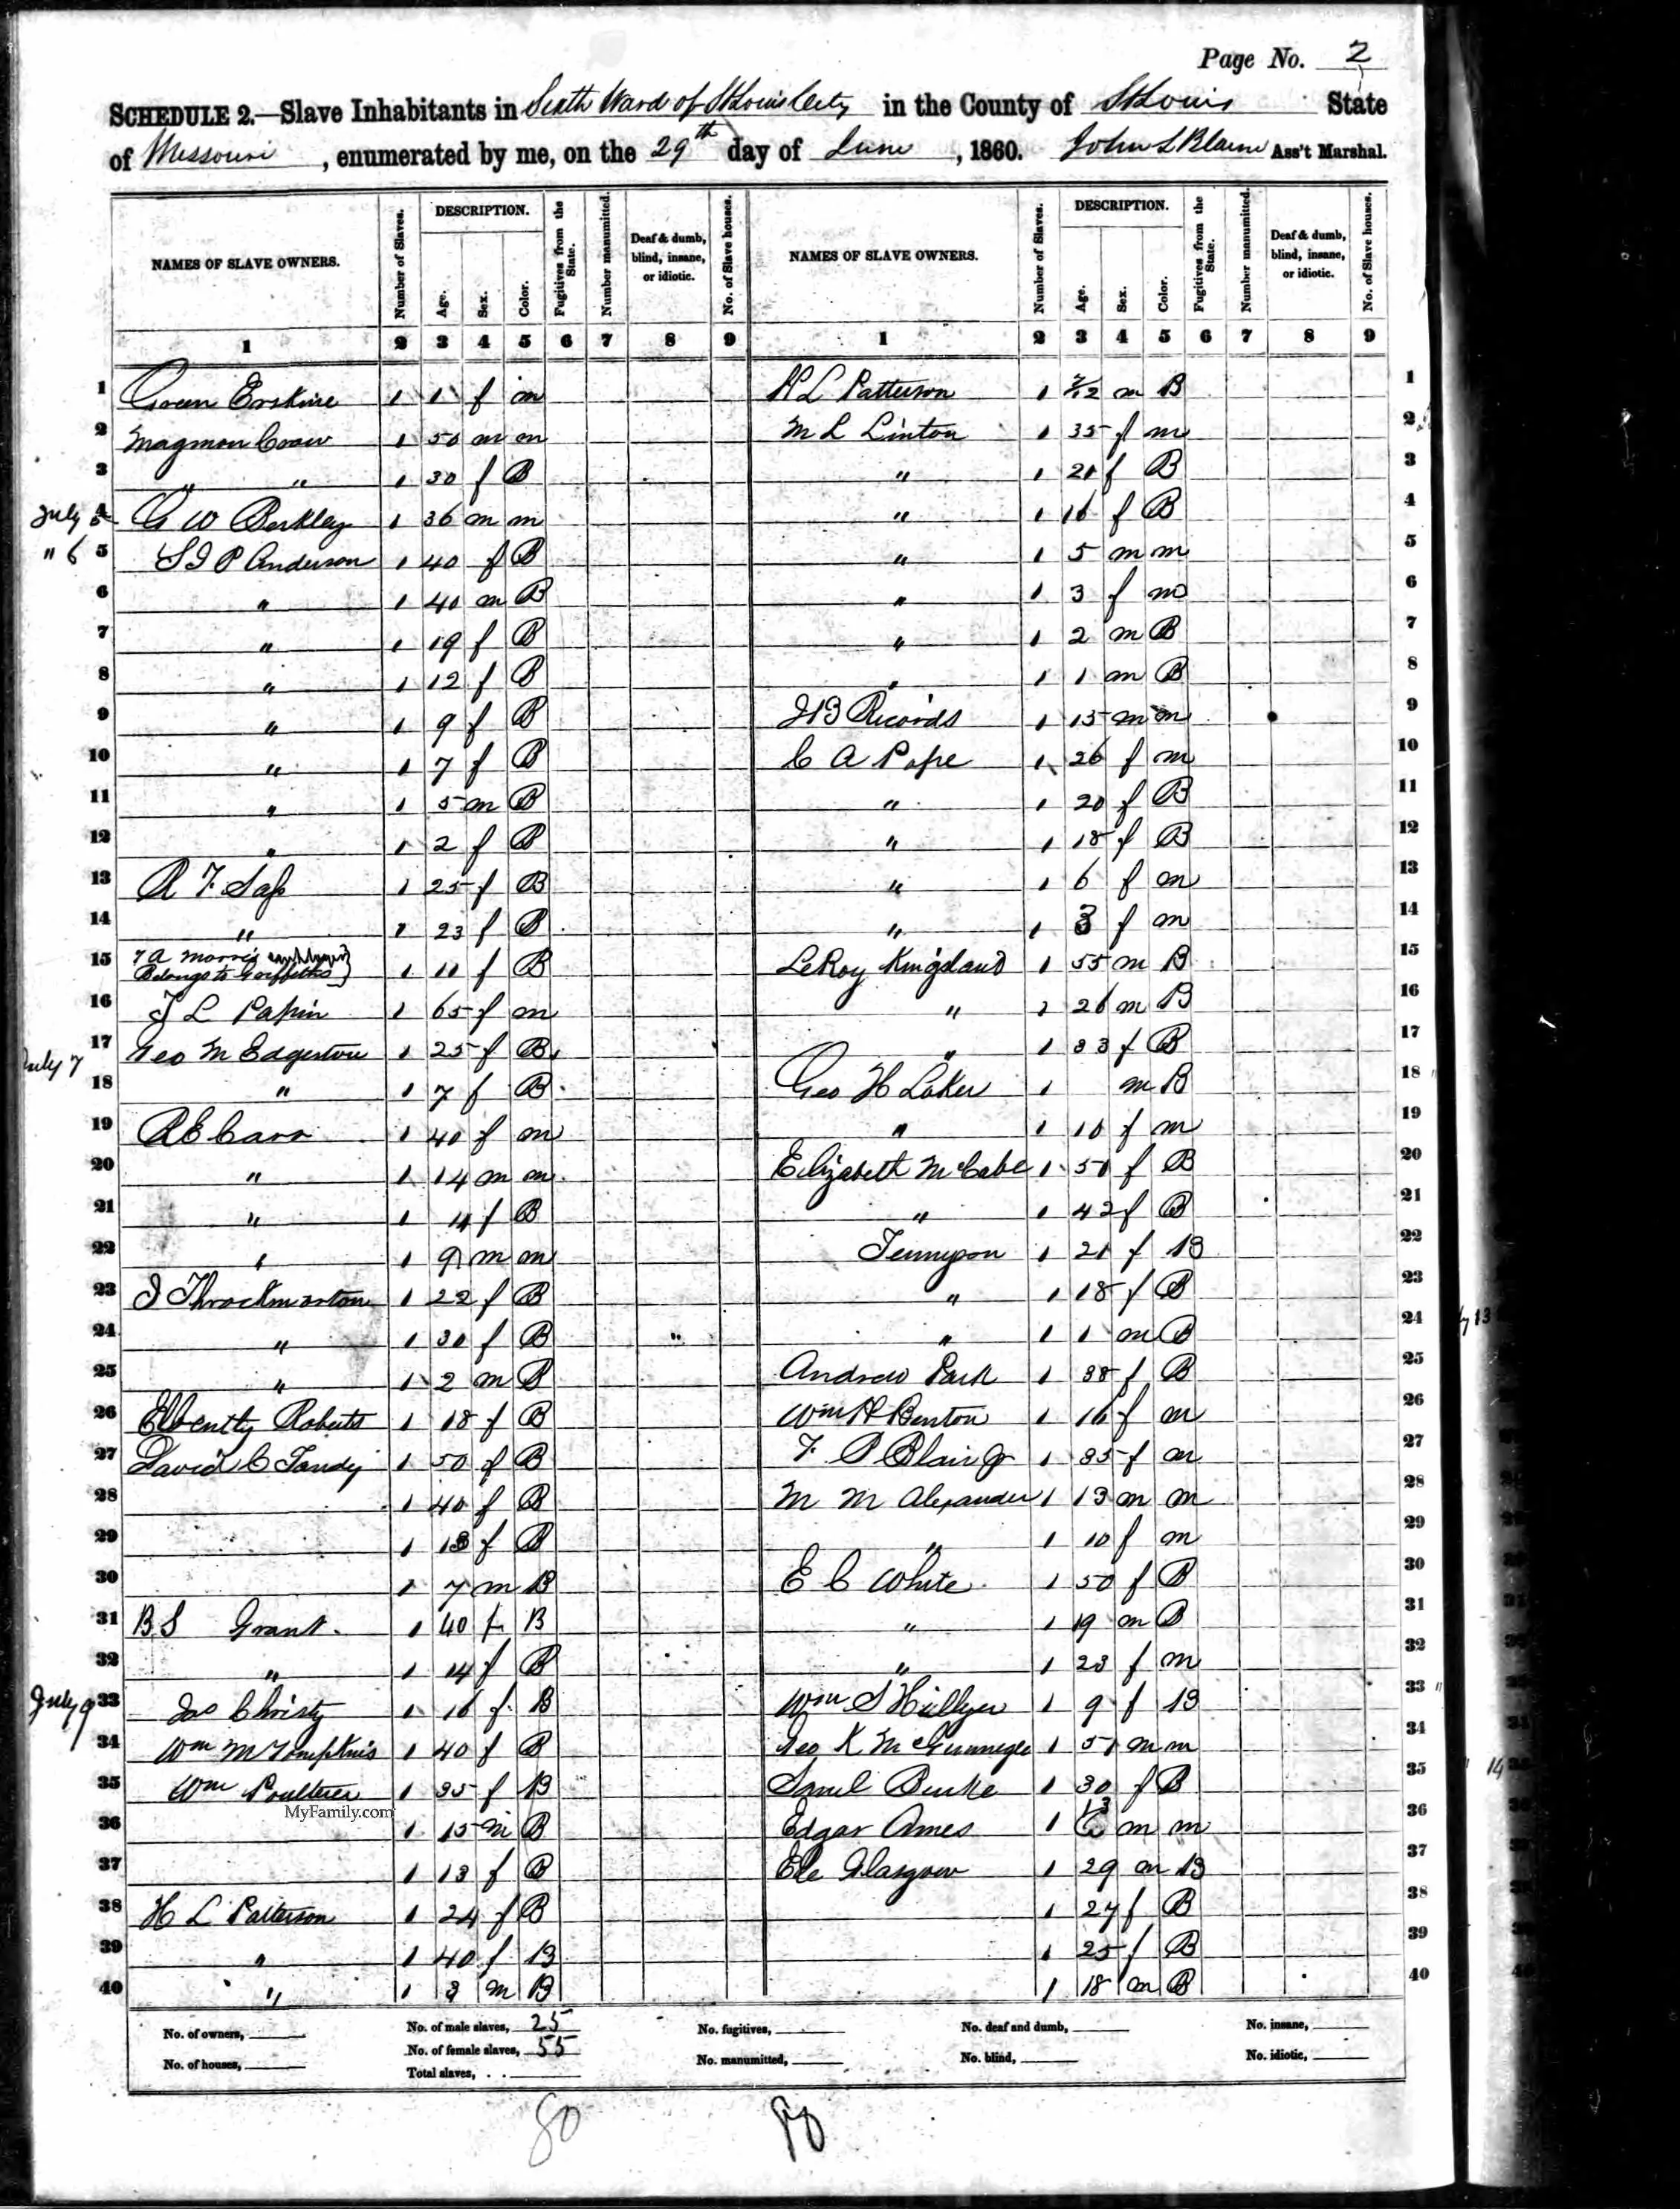 Page No. 2
SCHEDULE 2.—Slave Inhabitants in Sixth Ward of St Louis City in the County of St Louis State
of Missouri, enumerated by me, on the 29th day of June, 1860. John L Blaine Ass't Marshal.
NAMES OF SLAVE OWNERS. Number of Slaves. DESCRIPTION. Age. Sex. Color. Fugitives from the State. Number manumitted. Deaf & dumb, blind, insane, or idiotic. No. of Slave houses. NAMES OF SLAVE OWNERS. Number of Slaves. DESCRIPTION. Age. Sex. Color. Fugitives from the State. Number manumitted. Deaf & dumb, blind, insane, or idiotic. No. of Slave houses.
1 2 3 4 5 6 7 8 9 1 2 3 4 5 6 7 8 9
1 Green Erskine 1 1 f m
2 1 50 m m
3 " " 1 30 f B
July 5 4 G W Berkley 1 36 m m
" 6 5 S J P Anderson 1 40 f B
6 " 1 40 m B
7 " 1 19 f B
8 " 1 12 f B
9 " 1 9 f B
10 " 1 7 f B
11 " 1 5 m B
12 " 1 2 f B
13 R F Sap 1 25 f B
14 " 1 23 f B
15 Morris Belongs to Griffiths 1 11 f B
16 T L Papin 1 65 f m
July 7 17 Geo M Edgerton 1 25 f B
18 " 1 7 f B
19 R E Carr 1 40 f m
20 " 1 14 m m
21 " 1 4 f B
22 " 1 9 m m
23 J Throckmorton 1 22 f B
24 " 1 30 f B
25 " 1 2 m B
26 Roberts 1 18 f B
27 David C Tandy 1 50 f B
28 1 40 f B
29 1 13 f B
30 1 7 m B
31 B S Grant 1 40 f B
32 " 1 14 f B
July 9 33 Jas Christy 1 16 f B
34 Wm M Tompkins 1 40 f B
35 Wm Poulterer 1 35 f B
MyFamily.com
36 1 15 m B
37 1 13 f B
38 H L Patterson 1 24 f B
39 " 1 40 f B
40 " 1 3 m B
H L Patterson 1 m B 1
M L Linton 1 35 f m 2
" 1 21 f B 3
" 1 16 f B 4
" 1 5 m m 5
" 1 3 f m 6
" 1 2 m B 7
" 1 1 m B 8
J B Records 1 15 m m 9
C A Pope 1 26 f m 10
" 1 20 f B 11
" 1 18 f B 12
" 1 6 f m 13
" 1 3 f m 14
LeRoy Kingsland 1 55 m B 15
" 1 26 m B 16
" 1 33 f B 17
Geo H Loker 1 m B 18
" 1 10 f m 19
Elizabeth McCabe 1 50 f B 20
" 1 42 f B 21
Tennyson 1 21 f B 22
" 1 18 f B 23
" 1 1 m B 24
Andrew Park 1 38 f B 25
Wm H Benton 1 16 f m 26
F P Blair Jr 1 35 f m 27
M M Alexander 1 13 m m 28
" 1 10 f m 29
E C White 1 50 f B 30
" 1 19 m B 31
" 1 23 f m 32
Wm S Hillyer 1 9 f B 33
Geo K McGunnegle 1 51 m m 34
Saml Burke 1 30 f B 35
Edgar Ames 1 13 m m 36
Glasgow 1 29 m B 37
1 27 f B 38
1 25 f B 39
1 18 m B 40
No. of owners, No. of male slaves, 25 No. fugitives, No. deaf and dumb, No. insane,
No. of houses, No. of female slaves, 55 No. manumitted, No. blind, No. idiotic,
Total slaves,
80